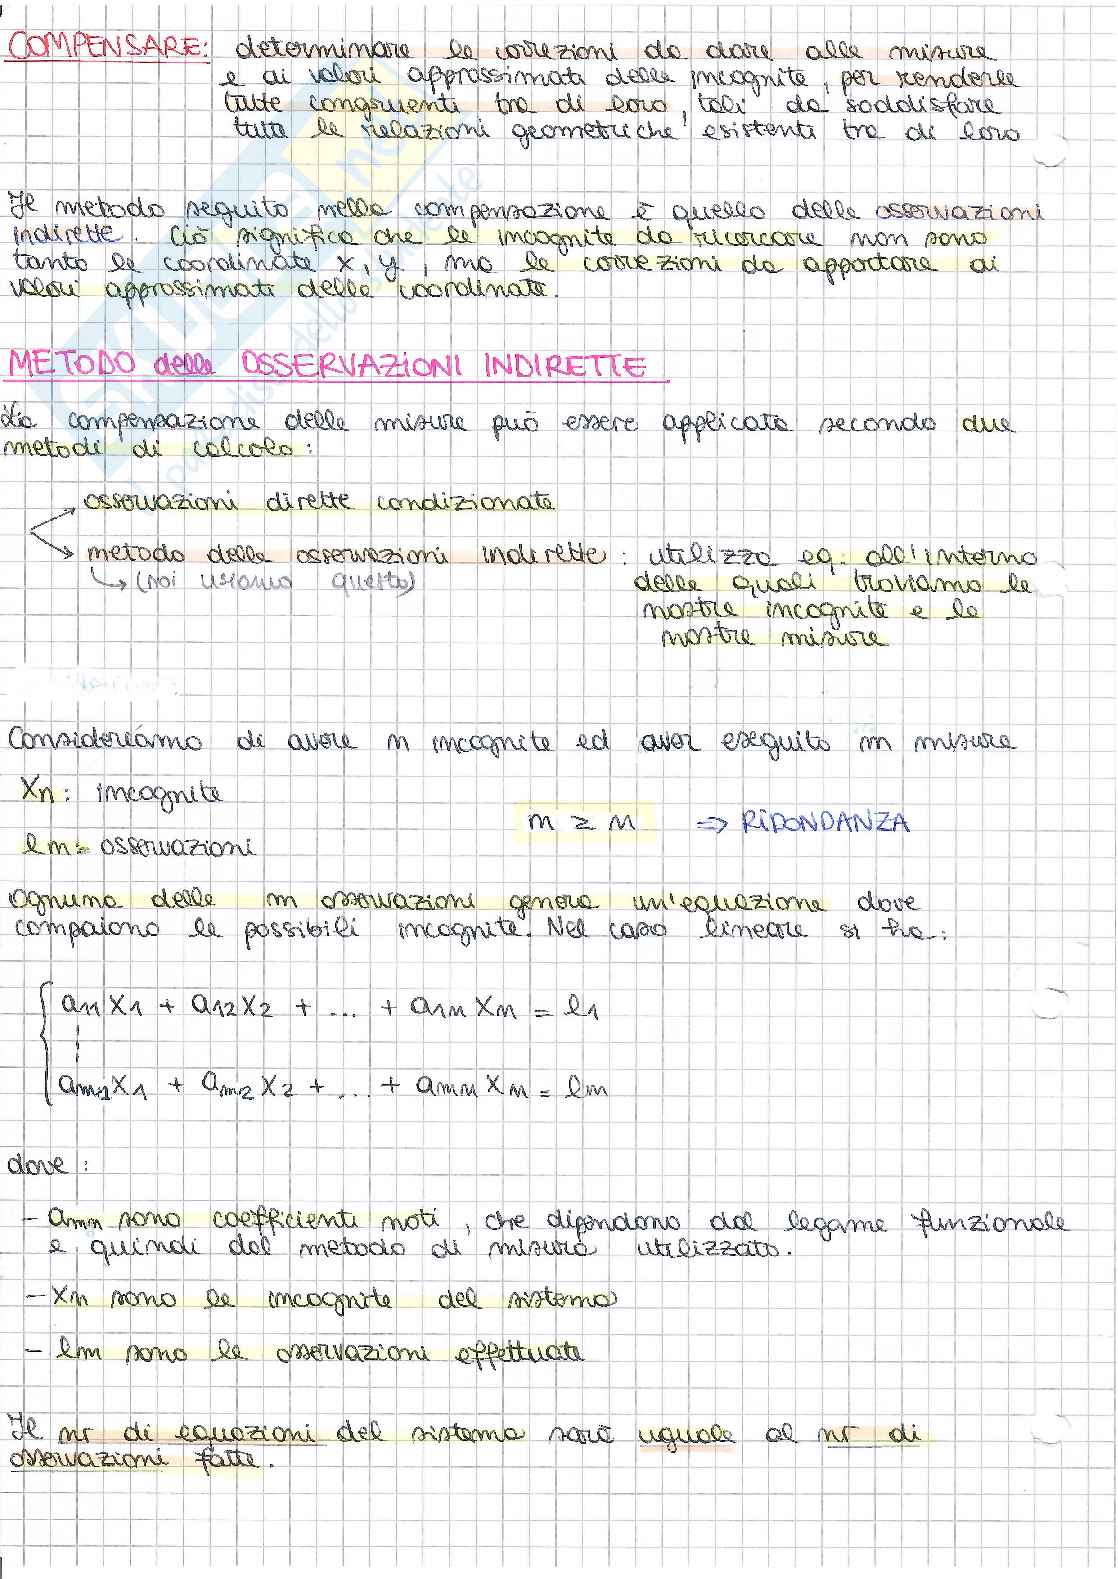 COMPENSARE: determinare le correzioni da dare alle misure
e ai valori approssimati delle incognite, per renderle
tutte congruenti tra di loro, tali da soddisfare
tutte le relazioni geometriche esistenti tra di loro
Il metodo seguito nella compensazione è quello delle osservazioni
indirette. Ciò significa che le incognite da ricercare non sono
tanto le coordinate x, y, ma le correzioni da apportare ai
valori approssimati delle coordinate.
METODO delle OSSERVAZIONI INDIRETTE
La compensazione delle misure può essere applicata secondo due
metodi di calcolo:
osservazioni dirette condizionate
metodo delle osservazioni indirette: utilizza eq. all'interno
↳ (noi usiamo questo) delle quali troviamo le
nostre incognite e le
nostre misure
Consideriamo di avere n incognite ed aver eseguito m misure
Xn: incognite
m ≥ n ⇒ RIDONDANZA
lm= osservazioni
Ognuna delle m osservazioni genera un'equazione dove
compaiono le possibili incognite. Nel caso lineare si ha:
a11 x1 + a12 x2 + ... + a1n xn = l1
am1 x1 + am2 x2 + ... + amn xn = lm
dove:
- amn sono coefficienti noti, che dipendono dal legame funzionale
e quindi dal metodo di misura utilizzato.
- xn sono le incognite del sistema
- lm sono le osservazioni effettuate
Il nr di equazioni del sistema sarà uguale al nr di
osservazioni fatte.